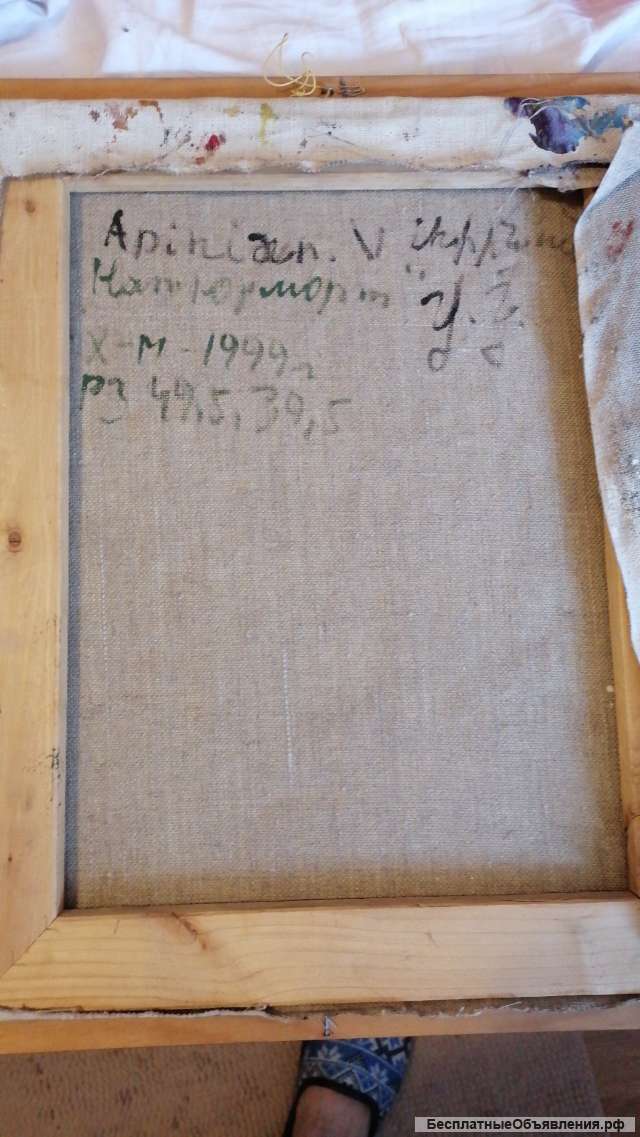 Apinian. V
"Натюрморт"
Х-М-1999г
РЗ 49,5, 39,5
БесплатныеОбъявления.рф